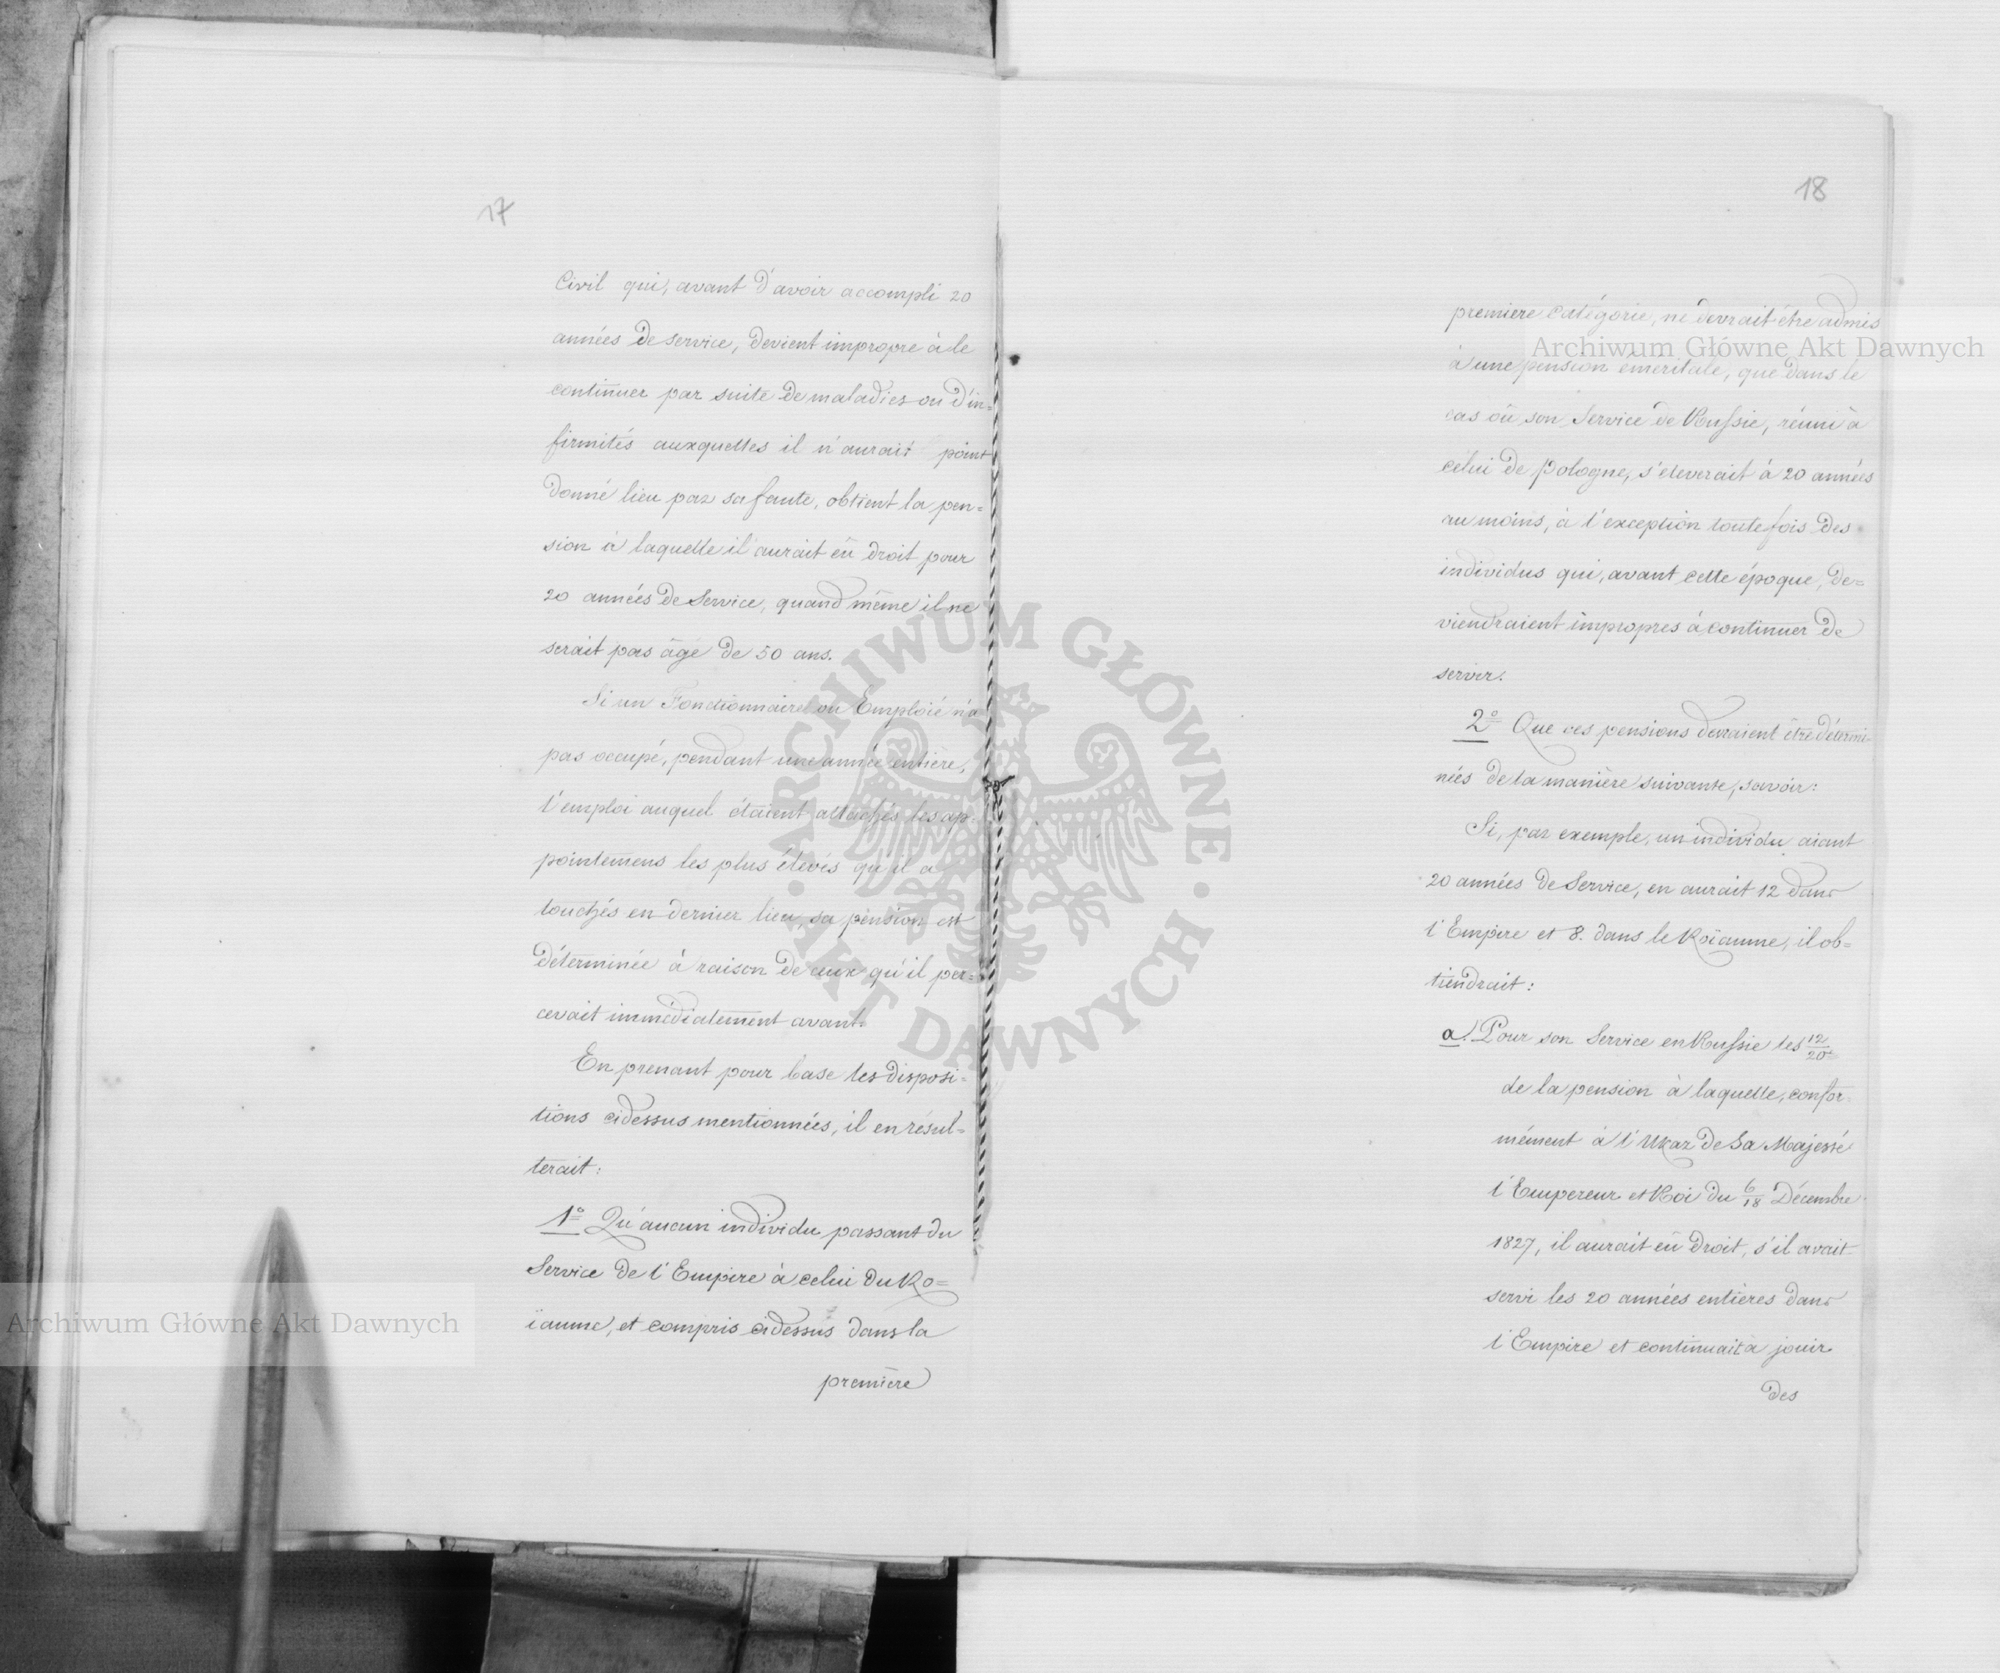 17
Civil qui, avant d'avoir accompli 20
années de service, devient impropre à le
continuer par suite de maladies ou d'in=
firmités auxquelles il n'aurait point
donné lieu par sa faute, obtient la pen=
sion à laquelle il aurait eû droit pour
20 années de Service, quand même il ne
serait pas âgé de 50 ans.
Si un Fonctionnaire ou Emploié n'a
pas occupé, pendant une année entière,
l'emploi auquel étaient attachés les ap-
pointemens les plus élevés qu'il a
touchés en dernier lieu, sa pension est
déterminée à raison de ceux qu'il per=
cevait immédiatement avant.
En prenant pour base les disposi=
tions cidessus mentionnées, il en résul=
terait:
1º Qu'aucun individu passant du
Service de l'Empire à celui du Ro=
ïaume, et compris cidessus dans la
première
18
première catégorie, ne devrait être admis
à une pension éméritale, que dans le
cas où son Service de Russie, réuni à
celui de Pologne, s'eleverait à 20 années
au moins, à l'exception toutefois des
individus qui, avant cette époque, de=
viendraient impropres à continuer de
servir.
2º Que ces pensions devraient être détermi-
nées de la manière suivante, savoir:
Si, par exemple, un individu aiant
20 années de Service, en aurait 12 dans
l'Empire et 8. dans le Roïaume, il ob=
tiendrait:
a. Pour son Service en Russie les 12/20es
de la pension à laquelle, confor-
mément à l'Ukaz de Sa Majesté
l'Empereur et Roi du 6/18 Décembre
1827, il aurait eû droit, s'il avait
servi les 20 années entières dans
l'Empire et continuait à jouir
des
Archiwum Główne Akt Dawnych
Archiwum Główne Akt Dawnych
ARCHIWUM GŁÓWNE · AKT DAWNYCH ·